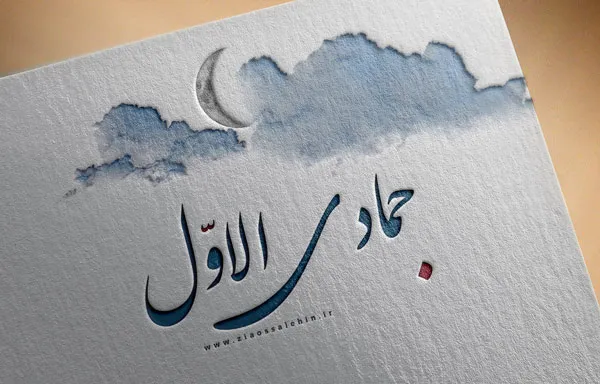 جمادی الاوّل
www.ziaossalehin.ir